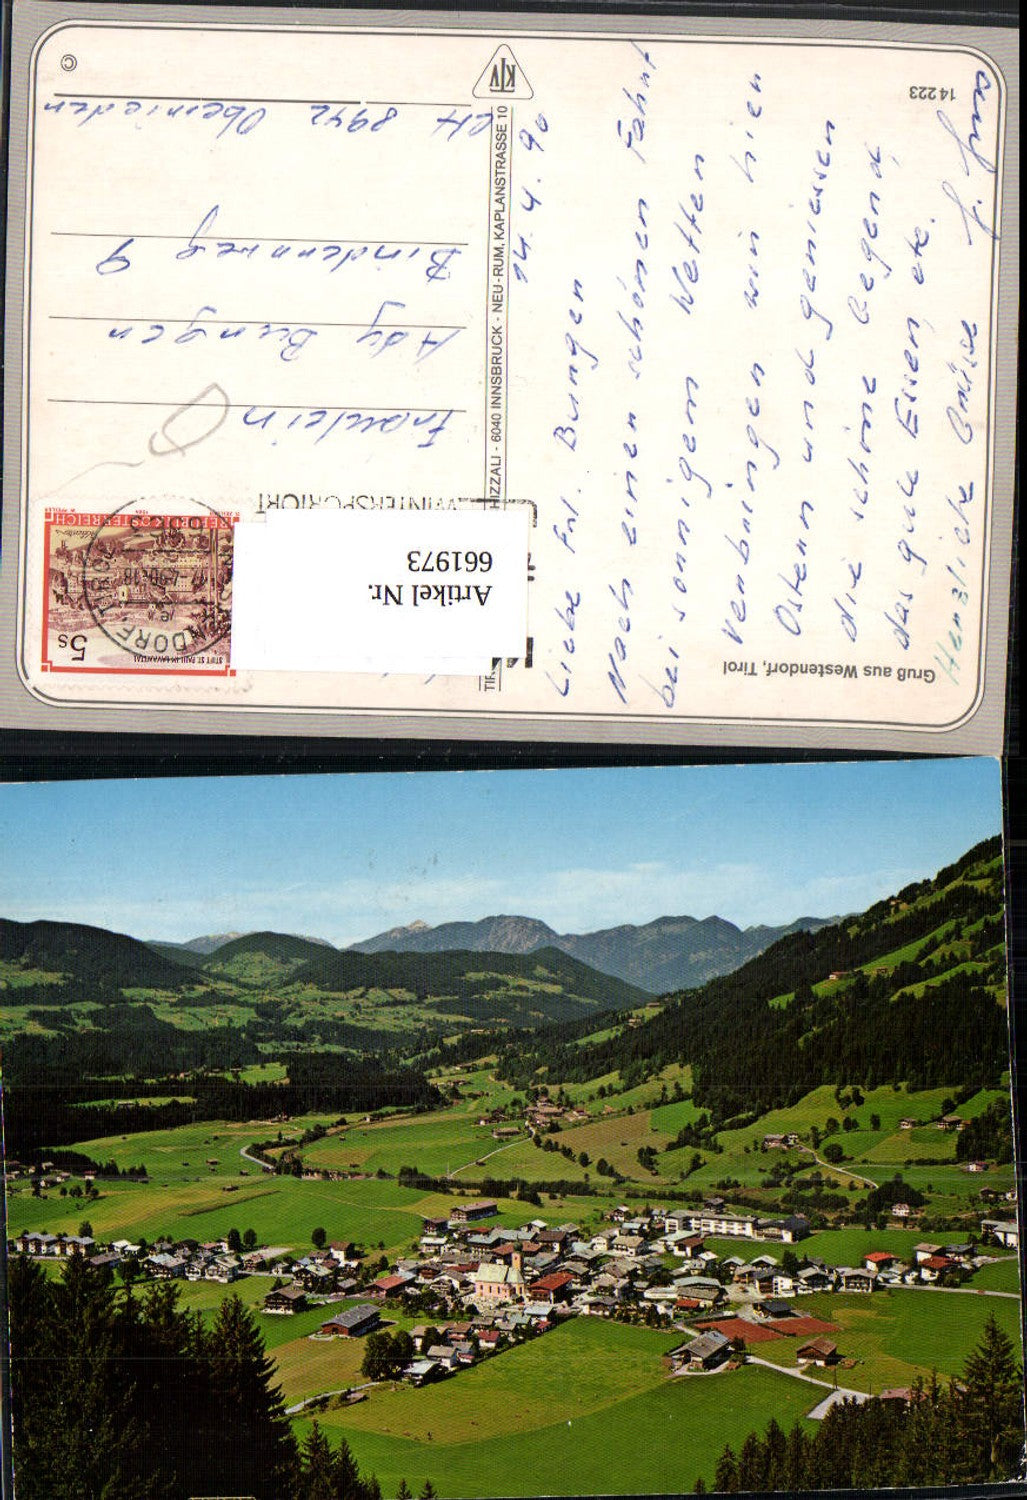 ©
KTV
14 223
14. 4. 90
Liebe Frl. Bungen
Nach einer schönen Fahrt
bei sonnigem Wetter
verbringen wir hier
Ostern und geniessen
die schöne Gegend,
das gute Essen, etc.
Herzliche Grüsse
Gruß aus Westendorf, Tirol
RIZZALI - 6040 INNSBRUCK - NEU-RUM, KAPLANSTRASSE 10
WINTERSPORTORT
REPUBLIK ÖSTERREICH
5 S
STIFT ST. PAUL IM LAVANTTAL
Fräulein
Ady Bungen
Binderweg 9
CH 8942 Oberrieden
Artikel Nr.
661973